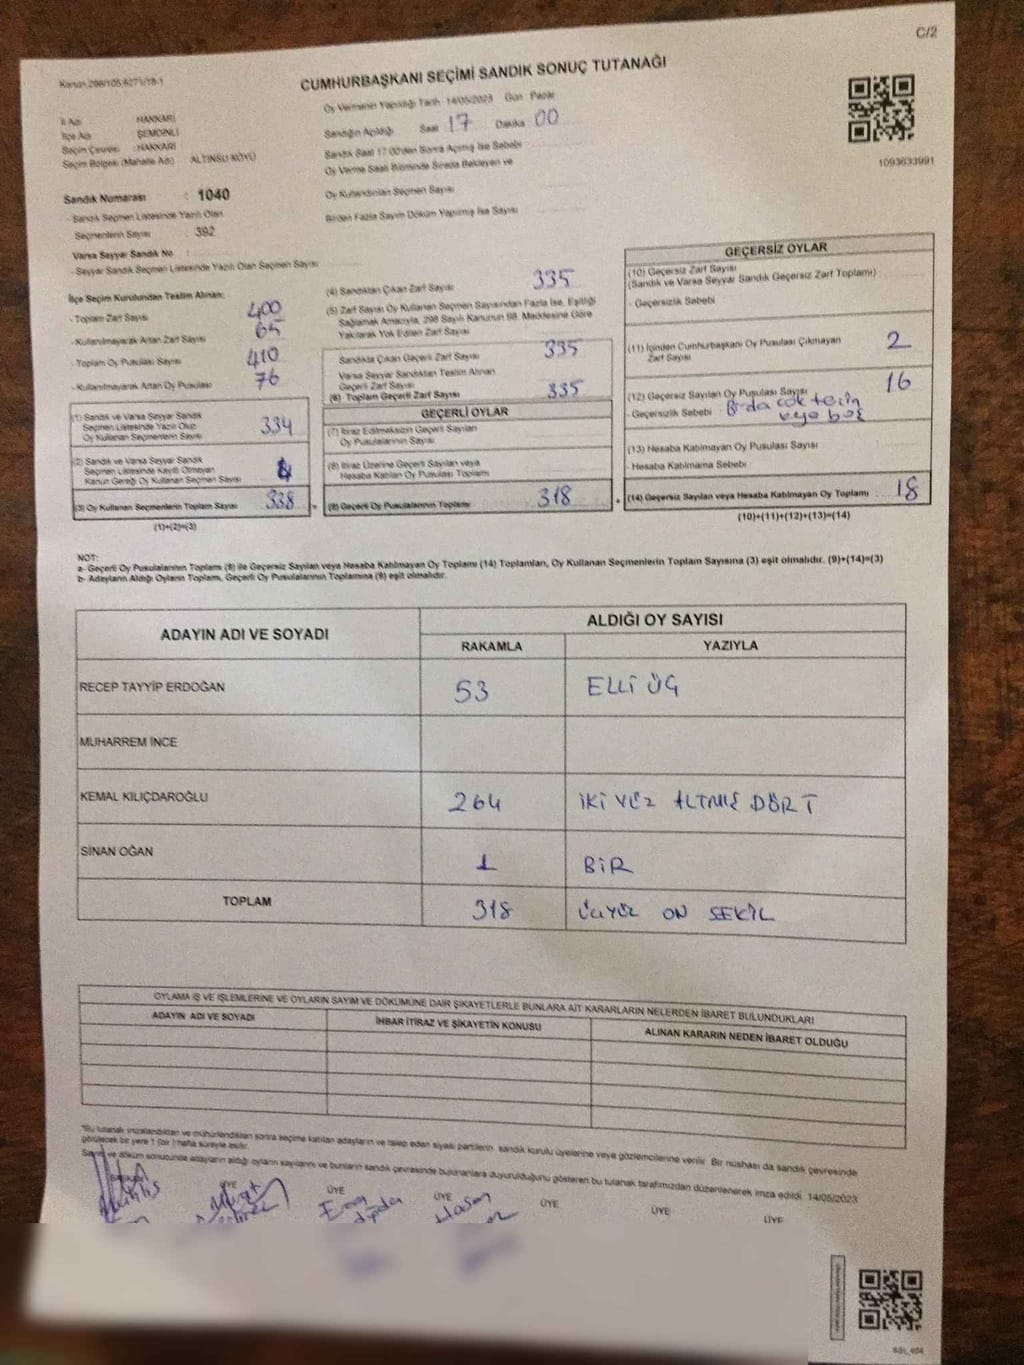 C/2
Kanun 298/105,6271/18-1
CUMHURBAŞKANI SEÇİMİ SANDIK SONUÇ TUTANAĞI
Oy Vermenin Yapıldığı Tarih 14/05/2023 Gün Pazar
İl Adı HAKKARİ
İlçe Adı ŞEMDİNLİ
Seçim Çevresi : HAKKARİ
Seçim Bölgesi (Mahalle Adı) ALTINSU KÖYÜ
Sandığın Açıldığı Saat 17 Dakika 00
Sandık Saat 17:00'den Sonra Açılmış İse Sebebi
Oy Verme Saati Bitiminde Sırada Bekleyen ve
Oy Kullandırılan Seçmen Sayısı
Birden Fazla Sayım Döküm Yapılmış İse Sayısı
1093633991
Sandık Numarası : 1040
- Sandık Seçmen Listesinde Yazılı Olan
Seçmenlerin Sayısı : 392
Varsa Seyyar Sandık No :
- Seyyar Sandık Seçmen Listesinde Yazılı Olan Seçmen Sayısı
İlçe Seçim Kurulundan Teslim Alınan:
- Toplam Zarf Sayısı 400
- Kullanılmayarak Artan Zarf Sayısı 65
- Toplam Oy Pusulası Sayısı 410
- Kullanılmayarak Artan Oy Pusulası 76
(1) Sandık ve Varsa Seyyar Sandık
Seçmen Listesinde Yazılı Olup
Oy Kullanan Seçmenlerin Sayısı 334
(2) Sandık ve Varsa Seyyar Sandık
Seçmen Listesinde Kayıtlı Olmayan
Kanun Gereği Oy Kullanan Seçmen Sayısı 4
(3) Oy Kullanan Seçmenlerin Toplam Sayısı 338
(1)+(2)=(3)
(4) Sandıktan Çıkan Zarf Sayısı 335
(5) Zarf Sayısı Oy Kullanan Seçmen Sayısından Fazla İse, Eşitliği
Sağlamak Amacıyla, 298 Sayılı Kanunun 98. Maddesine Göre
Yakılarak Yok Edilen Zarf Sayısı
Sandıkta Çıkan Geçerli Zarf Sayısı 335
Varsa Seyyar Sandıktan Teslim Alınan
Geçerli Zarf Sayısı
(6) Toplam Geçerli Zarf Sayısı 335
GEÇERLİ OYLAR
(7) İtiraz Edilmeksizin Geçerli Sayılan
Oy Pusulalarının Sayısı
(8) İtiraz Üzerine Geçerli Sayılan veya
Hesaba Katılan Oy Pusulası Toplamı
= (9) Geçerli Oy Pusulalarının Toplamı 318
GEÇERSİZ OYLAR
(10) Geçersiz Zarf Sayısı
(Sandık ve Varsa Seyyar Sandık Geçersiz Zarf Toplamı)
- Geçersizlik Sebebi
(11) İçinden Cumhurbaşkanı Oy Pusulası Çıkmayan
Zarf Sayısı 2
(12) Geçersiz Sayılan Oy Pusulası Sayısı 16
Geçersizlik Sebebi
veya boş
(13) Hesaba Katılmayan Oy Pusulası Sayısı
- Hesaba Katılmama Sebebi
+ (14) Geçersiz Sayılan veya Hesaba Katılmayan Oy Toplamı : 18
(10)+(11)+(12)+(13)=(14)
NOT:
a- Geçerli Oy Pusulaları Toplamı (9) ile Geçersiz Sayılan veya Hesaba Katılmayan Oy Toplamı (14) Toplamları, Oy Kullanan Seçmenlerin Toplam Sayısına (3) eşit olmalıdır. (9)+(14)=(3)
b- Adayların Aldığı Oyların Toplamı, Geçerli Oy Pusulalarının Toplamına (9) eşit olmalıdır.
ADAYIN ADI VE SOYADI ALDIĞI OY SAYISI
RAKAMLA YAZIYLA
RECEP TAYYİP ERDOĞAN 53 ELLİ ÜÇ
MUHARREM İNCE
KEMAL KILIÇDAROĞLU 264 İKİ YÜZ ALTMIŞ DÖRT
SİNAN OĞAN 1 BİR
TOPLAM 318 ÜÇYÜZ ON SEKİZ
OYLAMA İŞ VE İŞLEMLERİNE VE OYLARIN SAYIM VE DÖKÜMÜNE DAİR ŞİKAYETLERLE BUNLARA AİT KARARLARIN NELERDEN İBARET BULUNDUKLARI
ADAYIN ADI VE SOYADI İHBAR İTİRAZ VE ŞİKAYETİN KONUSU ALINAN KARARIN NEDEN İBARET OLDUĞU
*Bu tutanak imzalandıktan ve mühürlendikten sonra seçime katılan adayların ve talep eden siyasi partilerin sandık kurulu üyelerine veya gözlemcilerine verilir. Bir nüshası da sandık çevresinde
görülecek bir yere 1 (bir ) hafta süreyle asılır.
Sayım ve döküm sonucunda adayların aldığı oyların sayılarını ve bunların sandık çevresinde bulunanlara duyurulduğunu gösteren bu tutanak tarafımızdan düzenlenerek imza edildi. 14/05/2023
ÜYE ÜYE ÜYE ÜYE ÜYE ÜYE
Murat Hasan